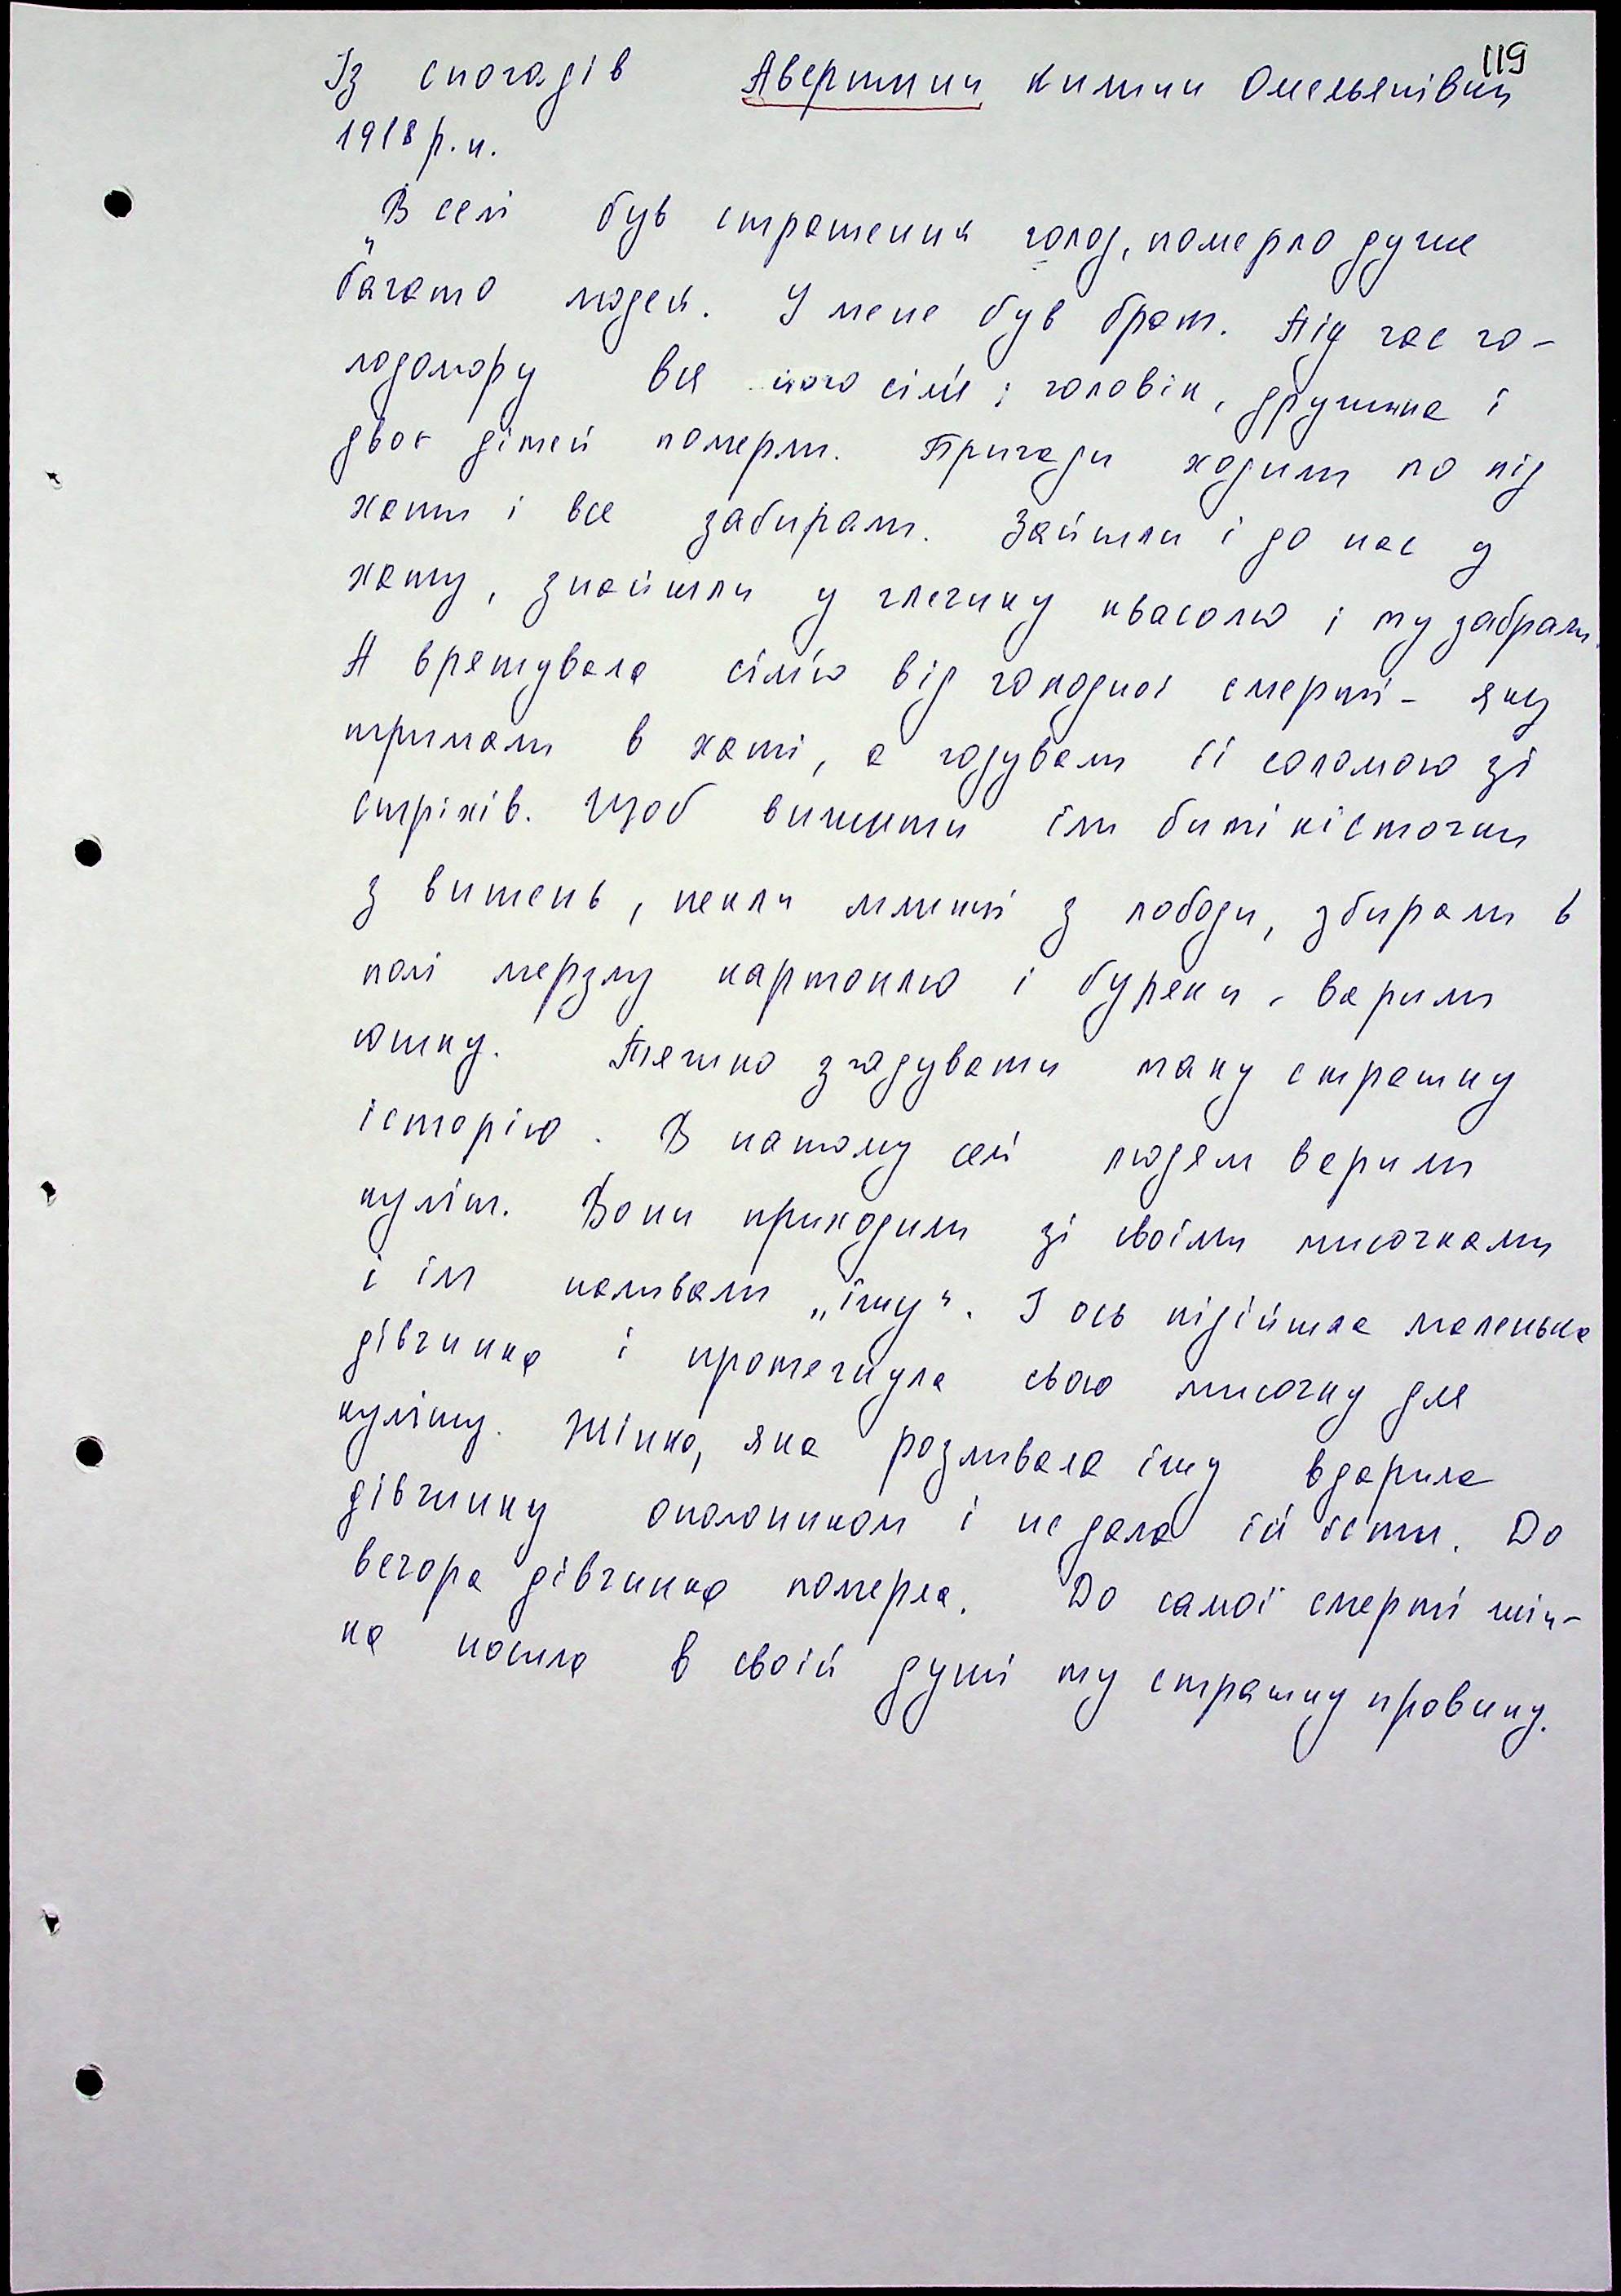 119
Із спогадів Авертини Килини Омелянівни
1918 р. н.
„В селі був страшенний голод, померло дуже
багато людей. У мене був брат. Під час го-
лодомору вся його сім'я: чоловік, дружина і
двоє дітей померли. Бригади ходили по під
хати і все забирали. Зайшли і до нас у
хату, знайшли у глечику квасолю і ту забрали.
А врятувала сім'ю від голодної смерті - яку
тримали в хаті, а годували її соломою зі
стріхів. Щоб вижити їли биті кісточки
з вишень, пекли млинці з лободи, збирали в
полі мерзлу картоплю і буряки, варили
юшку. Тяжко згадувати таку страшну
історію. В нашому селі людям варили
куліш. Вони приходили зі своїми мисочками
і їм наливали „їжу". І ось підійшла маленька
дівчинка і протягнула свою мисочку для
кулішу. Жінка, яка розливала їжу вдарила
дівчинку ополоником і не дала їй їсти. До
вечора дівчинка померла. До самої смерті жін-
ка носила в своїй душі ту страшну провину.